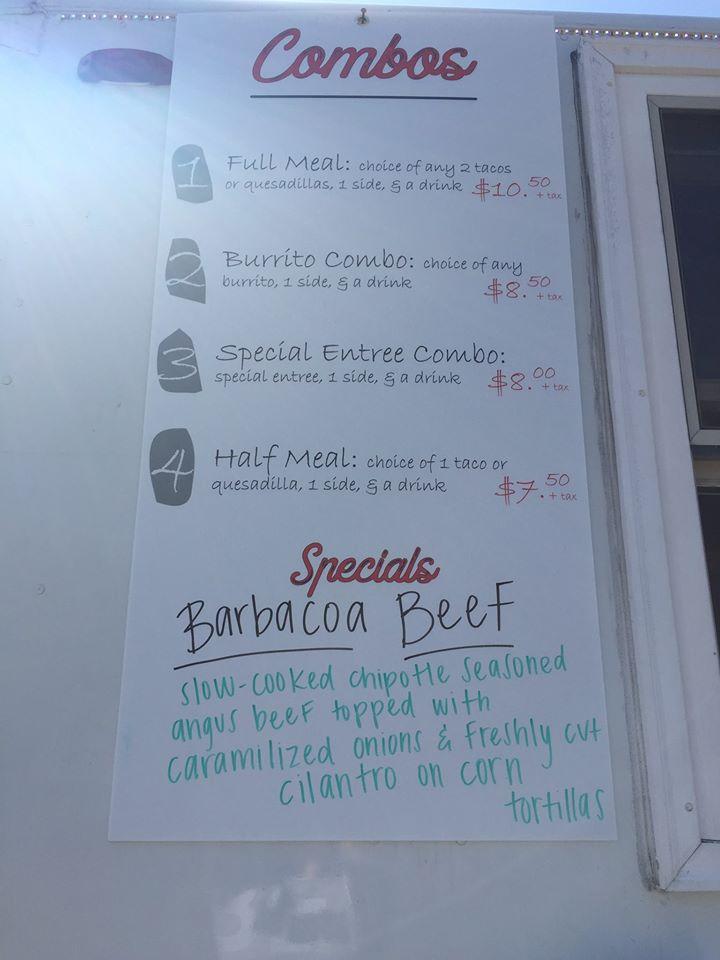 Combos
1 Full Meal: choice of any 2 tacos
or quesadillas, 1 side, & a drink $10.50 + tax
2 Burrito Combo: choice of any
burrito, 1 side, & a drink $8.50 + tax
3 Special Entree Combo:
special entree, 1 side, & a drink $8.00 + tax
4 Half Meal: choice of 1 taco or
quesadilla, 1 side, & a drink $7.50 + tax
Specials
Barbacoa Beef
slow-cooked chipotle seasoned
angus beef topped with
caramilized onions & freshly cut
cilantro on corn
tortillas